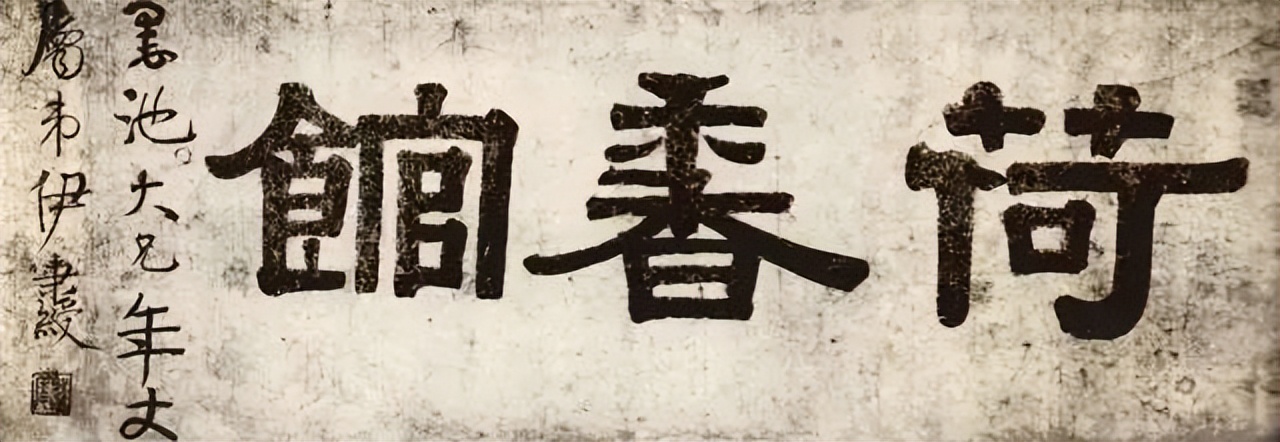 荷香館
墨池大兄年丈
屬弟伊秉綬